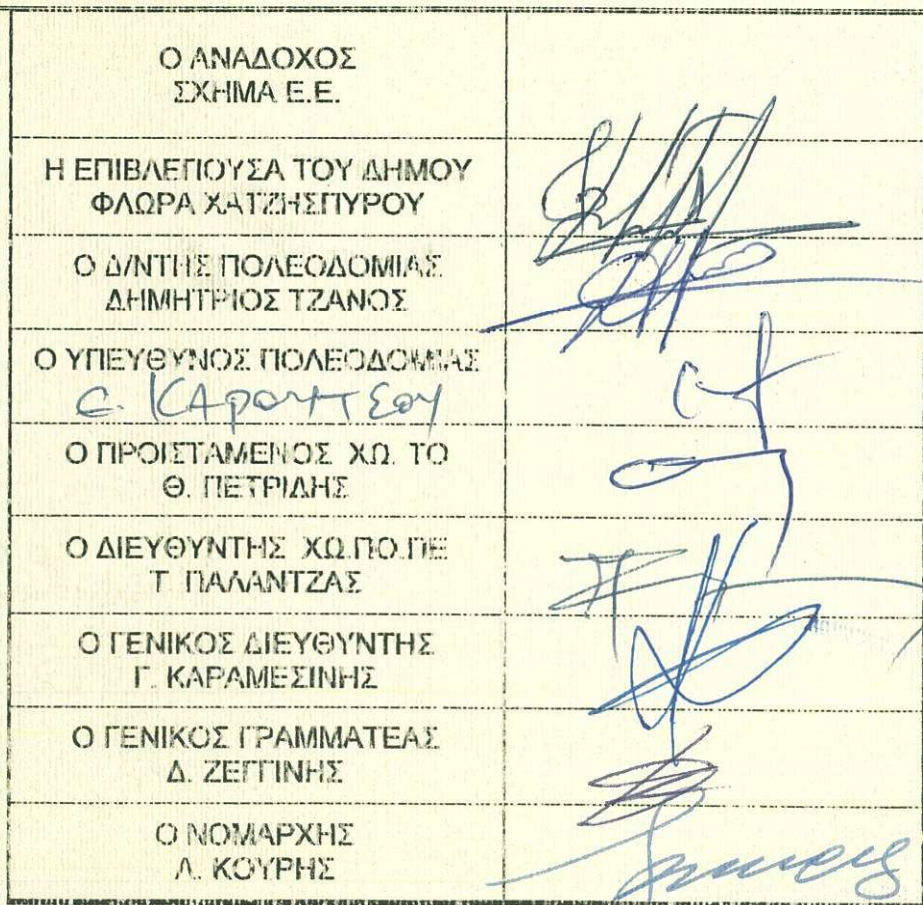 Ο ΑΝΑΔΟΧΟΣ
ΣΧΗΜΑ Ε.Ε.
Η ΕΠΙΒΛΕΠΟΥΣΑ ΤΟΥ ΔΗΜΟΥ
ΦΛΩΡΑ ΧΑΤΖΗΣΠΥΡΟΥ
Ο Δ/ΝΤΗΣ ΠΟΛΕΟΔΟΜΙΑΣ
ΔΗΜΗΤΡΙΟΣ ΤΖΑΝΟΣ
Ο ΥΠΕΥΘΥΝΟΣ ΠΟΛΕΟΔΟΜΙΑΣ
Ο ΠΡΟΙΣΤΑΜΕΝΟΣ ΧΩ. ΤΟ
Θ. ΠΕΤΡΙΔΗΣ
Ο ΔΙΕΥΘΥΝΤΗΣ ΧΩ.ΠΟ.ΠΕ
Τ. ΠΑΛΑΝΤΖΑΣ
Ο ΓΕΝΙΚΟΣ ΔΙΕΥΘΥΝΤΗΣ
Γ. ΚΑΡΑΜΕΣΙΝΗΣ
Ο ΓΕΝΙΚΟΣ ΓΡΑΜΜΑΤΕΑΣ
Δ. ΖΕΓΓΙΝΗΣ
Ο ΝΟΜΑΡΧΗΣ
Λ. ΚΟΥΡΗΣ